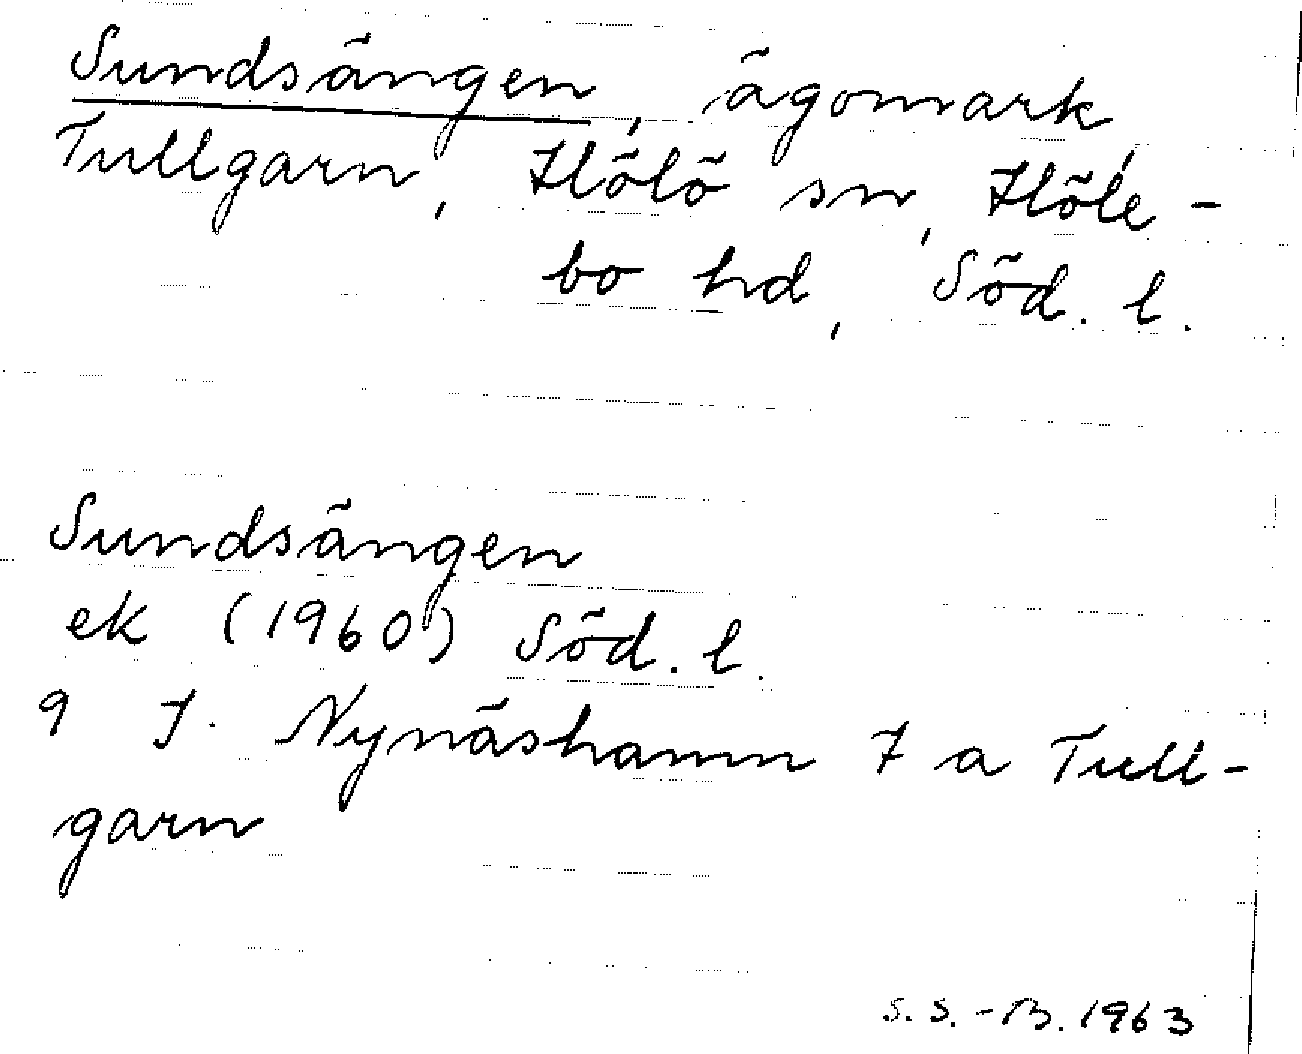 Sundsängen, ägomark,
Tullgarn, Hölö sn, Höle-
bo hd, Söd. l.
Sundsängen
ek (1960) Söd. l.
9 I. Nynäshamn 7 a Tull-
garn
S.S.-B. 1963